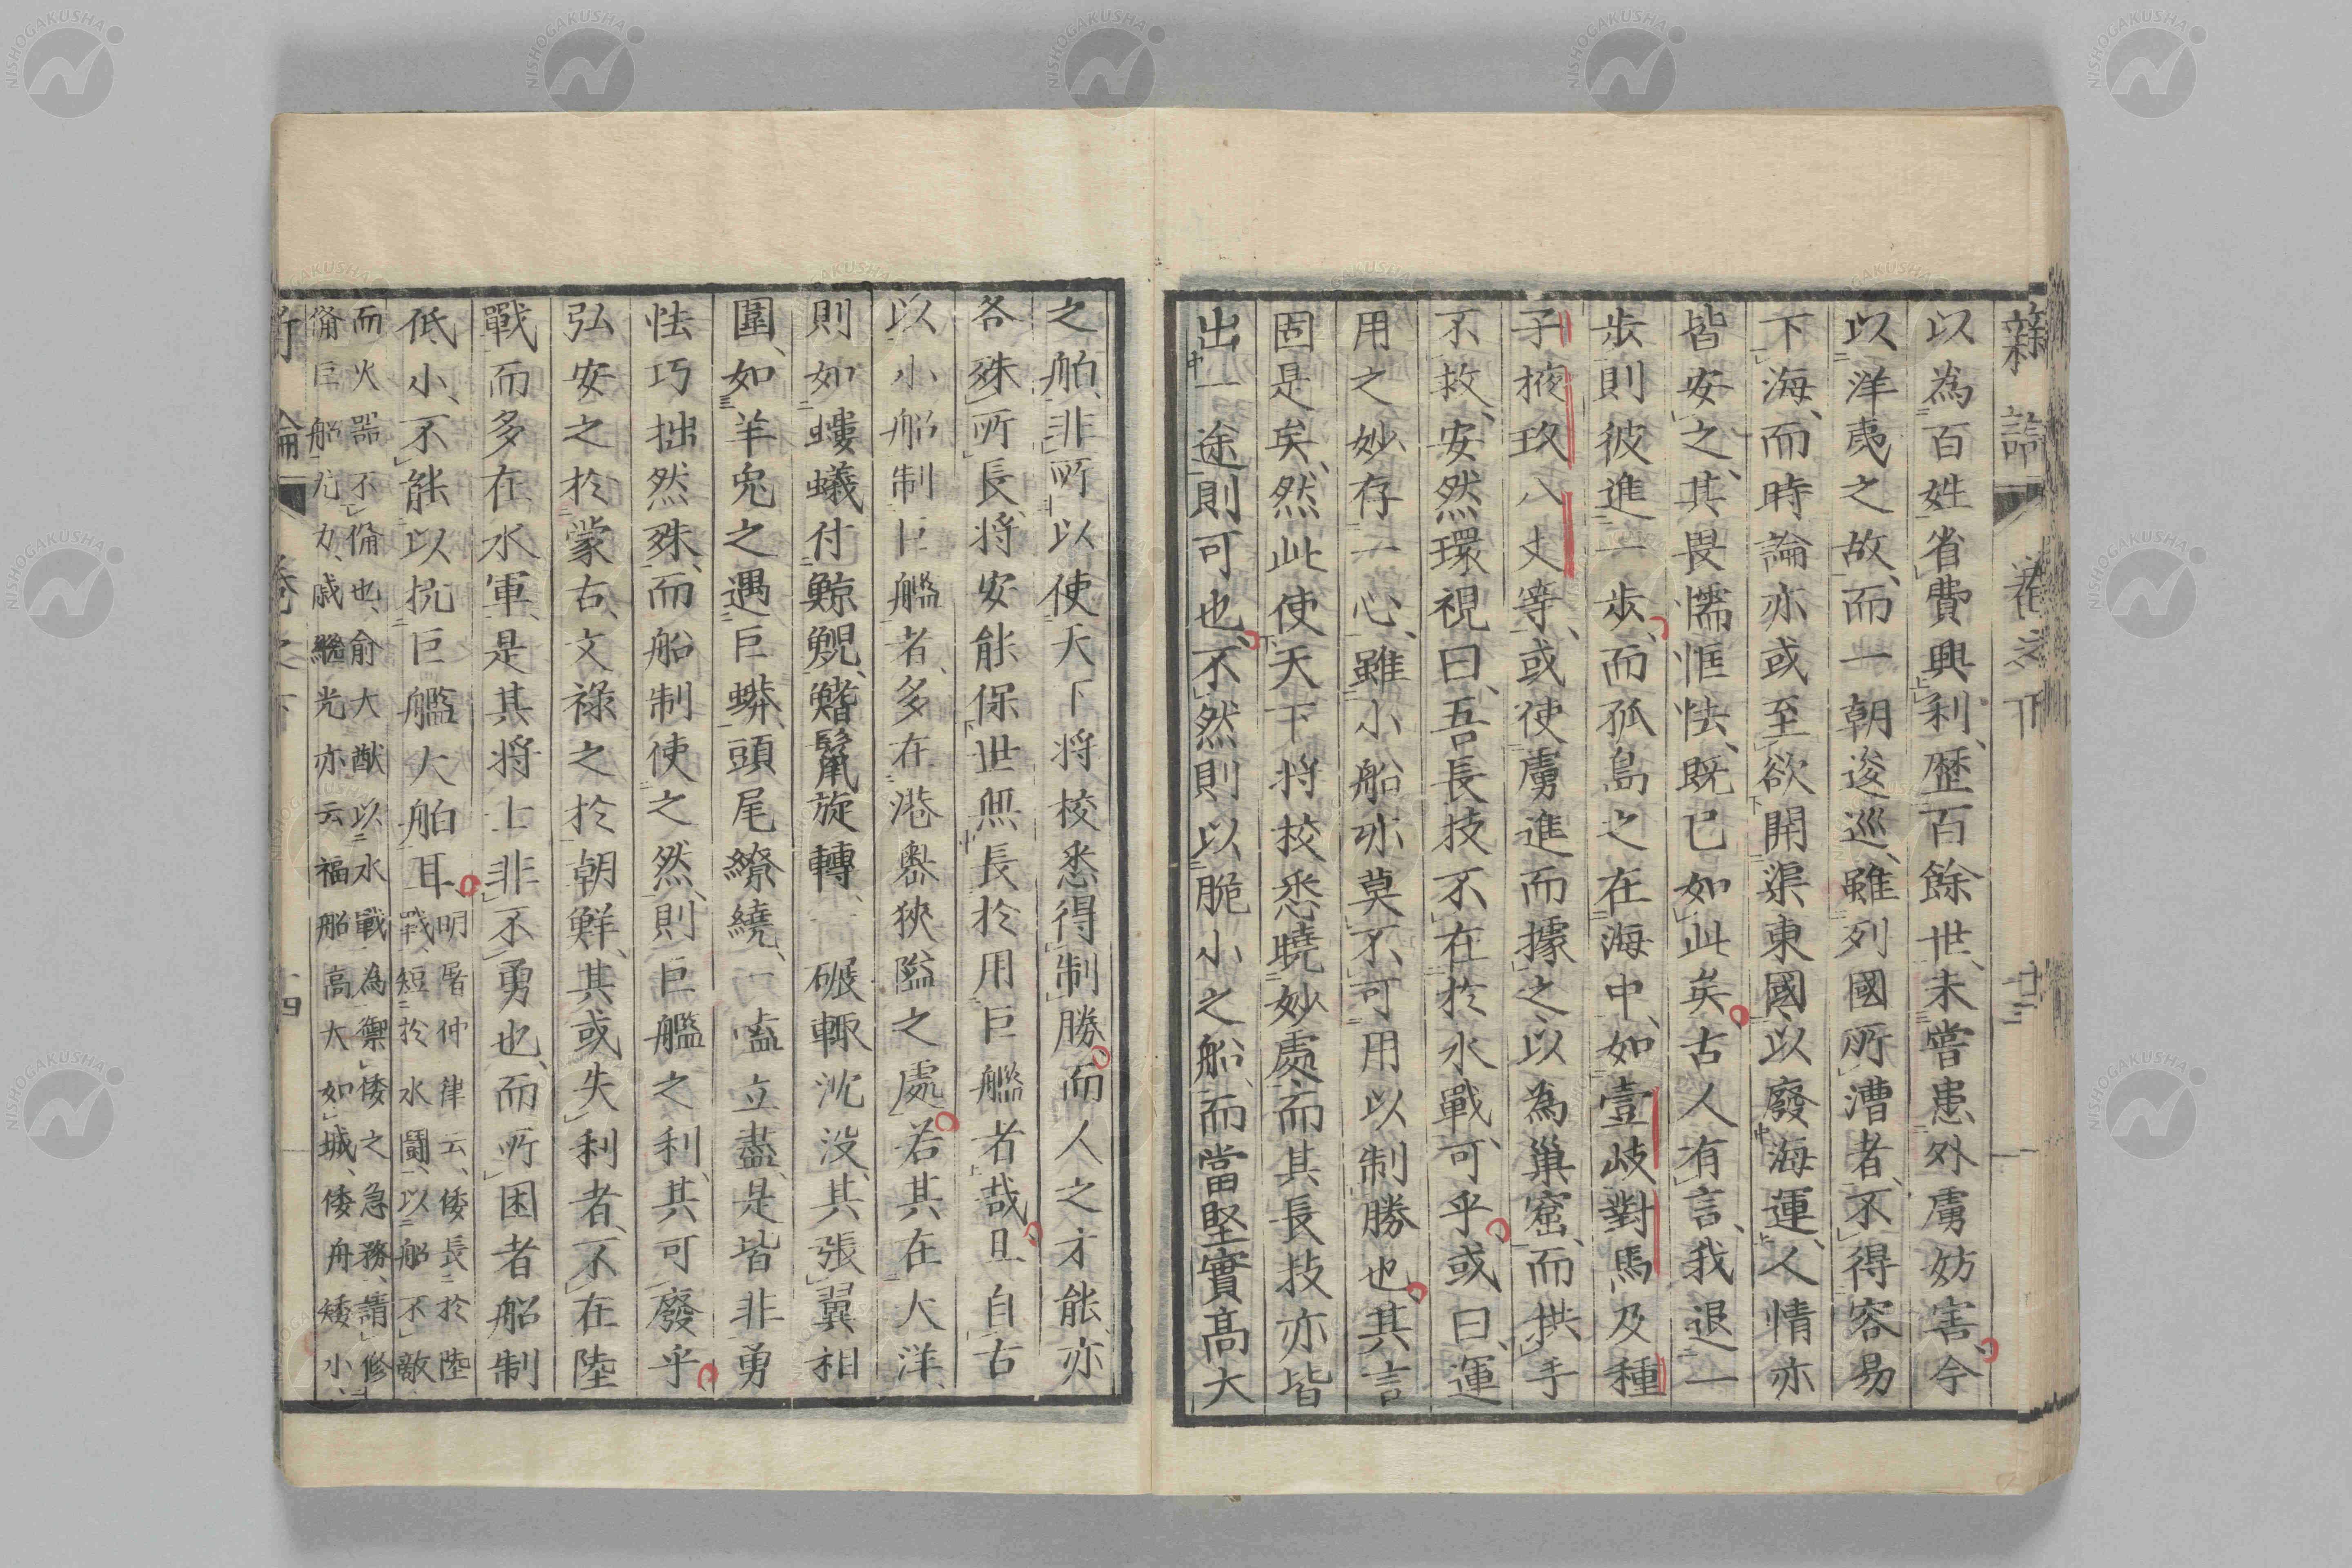 新論 卷之下 十三
以為百姓省費興利、歷百餘世、未嘗患外虜妨害、今
以洋夷之故、而一朝逡巡、雖列國所漕者、不得容易
下海、而時論亦或至欲開渠東國、以廢海運、人情亦
皆安之、其畏懦恇怯、既已如此矣、古人有言、我退一
步則彼進一步、而孤島之在海中、如壹岐對馬及種
子掖玖八丈等、或使虜進而據之、以為巢窟、而拱手
不救、安然環視曰、吾長技不在於水戰、可乎、或曰、運
用之妙存一心、雖小船亦莫不可用以制勝也、其言
固是矣、然此使天下將校悉曉妙處、而其長技亦皆
出一途則可也、不然則以脆小之船、而當堅實高大
之舶、非所以使天下將校悉得制勝、而人之才能、亦
各殊所長、將安能保世無長於用巨艦者哉、且自古
以小船制巨艦者、多在港嶴狹隘之處、若其在大洋、
則如螻蟻付鯨鯢、鰭鬣旋轉、碾輙沈没、其張翼相
圍、如羊兎之遇巨蟒、頭尾繚繞、一嗑立盡、是皆非勇
怯巧拙然殊、而船制使之然、則巨艦之利、其可廢乎、
弘安之於蒙古、文祿之於朝鮮、其或失利者、不在陸
戰而多在水軍、是其將士非不勇也、而所困者船制
低小、不能以抗巨艦大舶耳、
明屠仲律云、倭長於陸
戰、短於水鬪、以船不敵
而火器不備也、俞大猷以水戰為禦倭之急務、請修
備巨船尤力、戚繼光亦云福船高大如城、倭舟矮小、
新論 卷之下